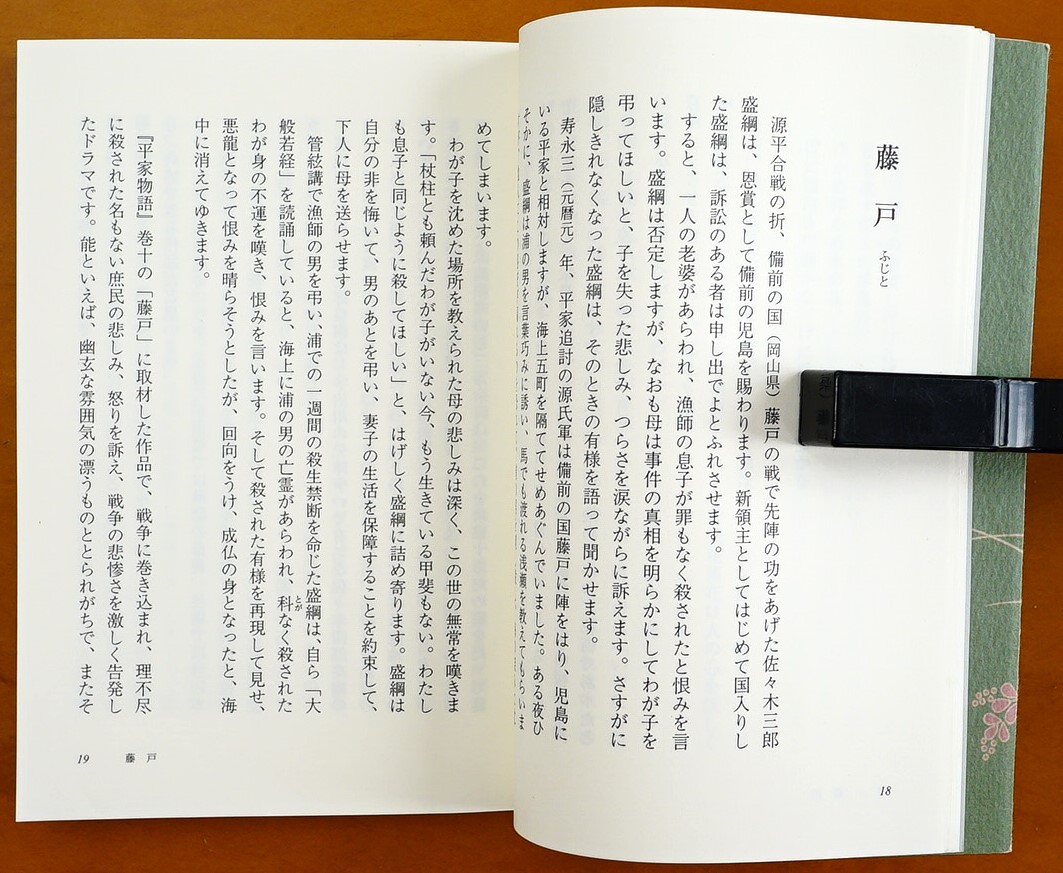 藤戸 ふじと
源平合戦の折、備前の国（岡山県）藤戸の戦で先陣の功をあげた佐々木三郎
盛綱は、恩賞として備前の児島を賜わります。新領主としてはじめて国入りし
た盛綱は、訴訟のある者は申し出でよとふれさせます。
すると、一人の老婆があらわれ、漁師の息子が罪もなく殺されたと恨みを言
います。盛綱は否定しますが、なおも母は事件の真相を明らかにしてわが子を
弔ってほしいと、子を失った悲しみ、つらさを涙ながらに訴えます。さすがに
隠しきれなくなった盛綱は、そのときの有様を語って聞かせます。
寿永三（元暦元）年、平家追討の源氏軍は備前の国藤戸に陣をはり、児島に
いる平家と相対しますが、海上五町を隔ててせめあぐんでいました。ある夜ひ
そかに、盛綱は浦の男を言葉巧みに誘い、馬でも渡れる浅瀬を教えてもらいま
18
めてしまいます。
わが子を沈めた場所を教えられた母の悲しみは深く、この世の無常を嘆きま
す。「杖柱とも頼んだわが子がいない今、もう生きている甲斐もない。わたし
も息子と同じように殺してほしい」と、はげしく盛綱に詰め寄ります。盛綱は
自分の非を悔いて、男のあとを弔い、妻子の生活を保障することを約束して、
下人に母を送らせます。
管絃講で漁師の男を弔い、浦での一週間の殺生禁断を命じた盛綱は、自ら「大
般若経」を読誦していると、海上に浦の男の亡霊があらわれ、科なく殺された
とが
わが身の不運を嘆き、恨みを言います。そして殺された有様を再現して見せ、
悪龍となって恨みを晴らそうとしたが、回向をうけ、成仏の身となったと、海
中に消えてゆきます。
『平家物語』巻十の「藤戸」に取材した作品で、戦争に巻き込まれ、理不尽
に殺された名もない庶民の悲しみ、怒りを訴え、戦争の悲惨さを激しく告発し
たドラマです。能といえば、幽玄な雰囲気の漂うものととられがちで、またそ
19 藤戸